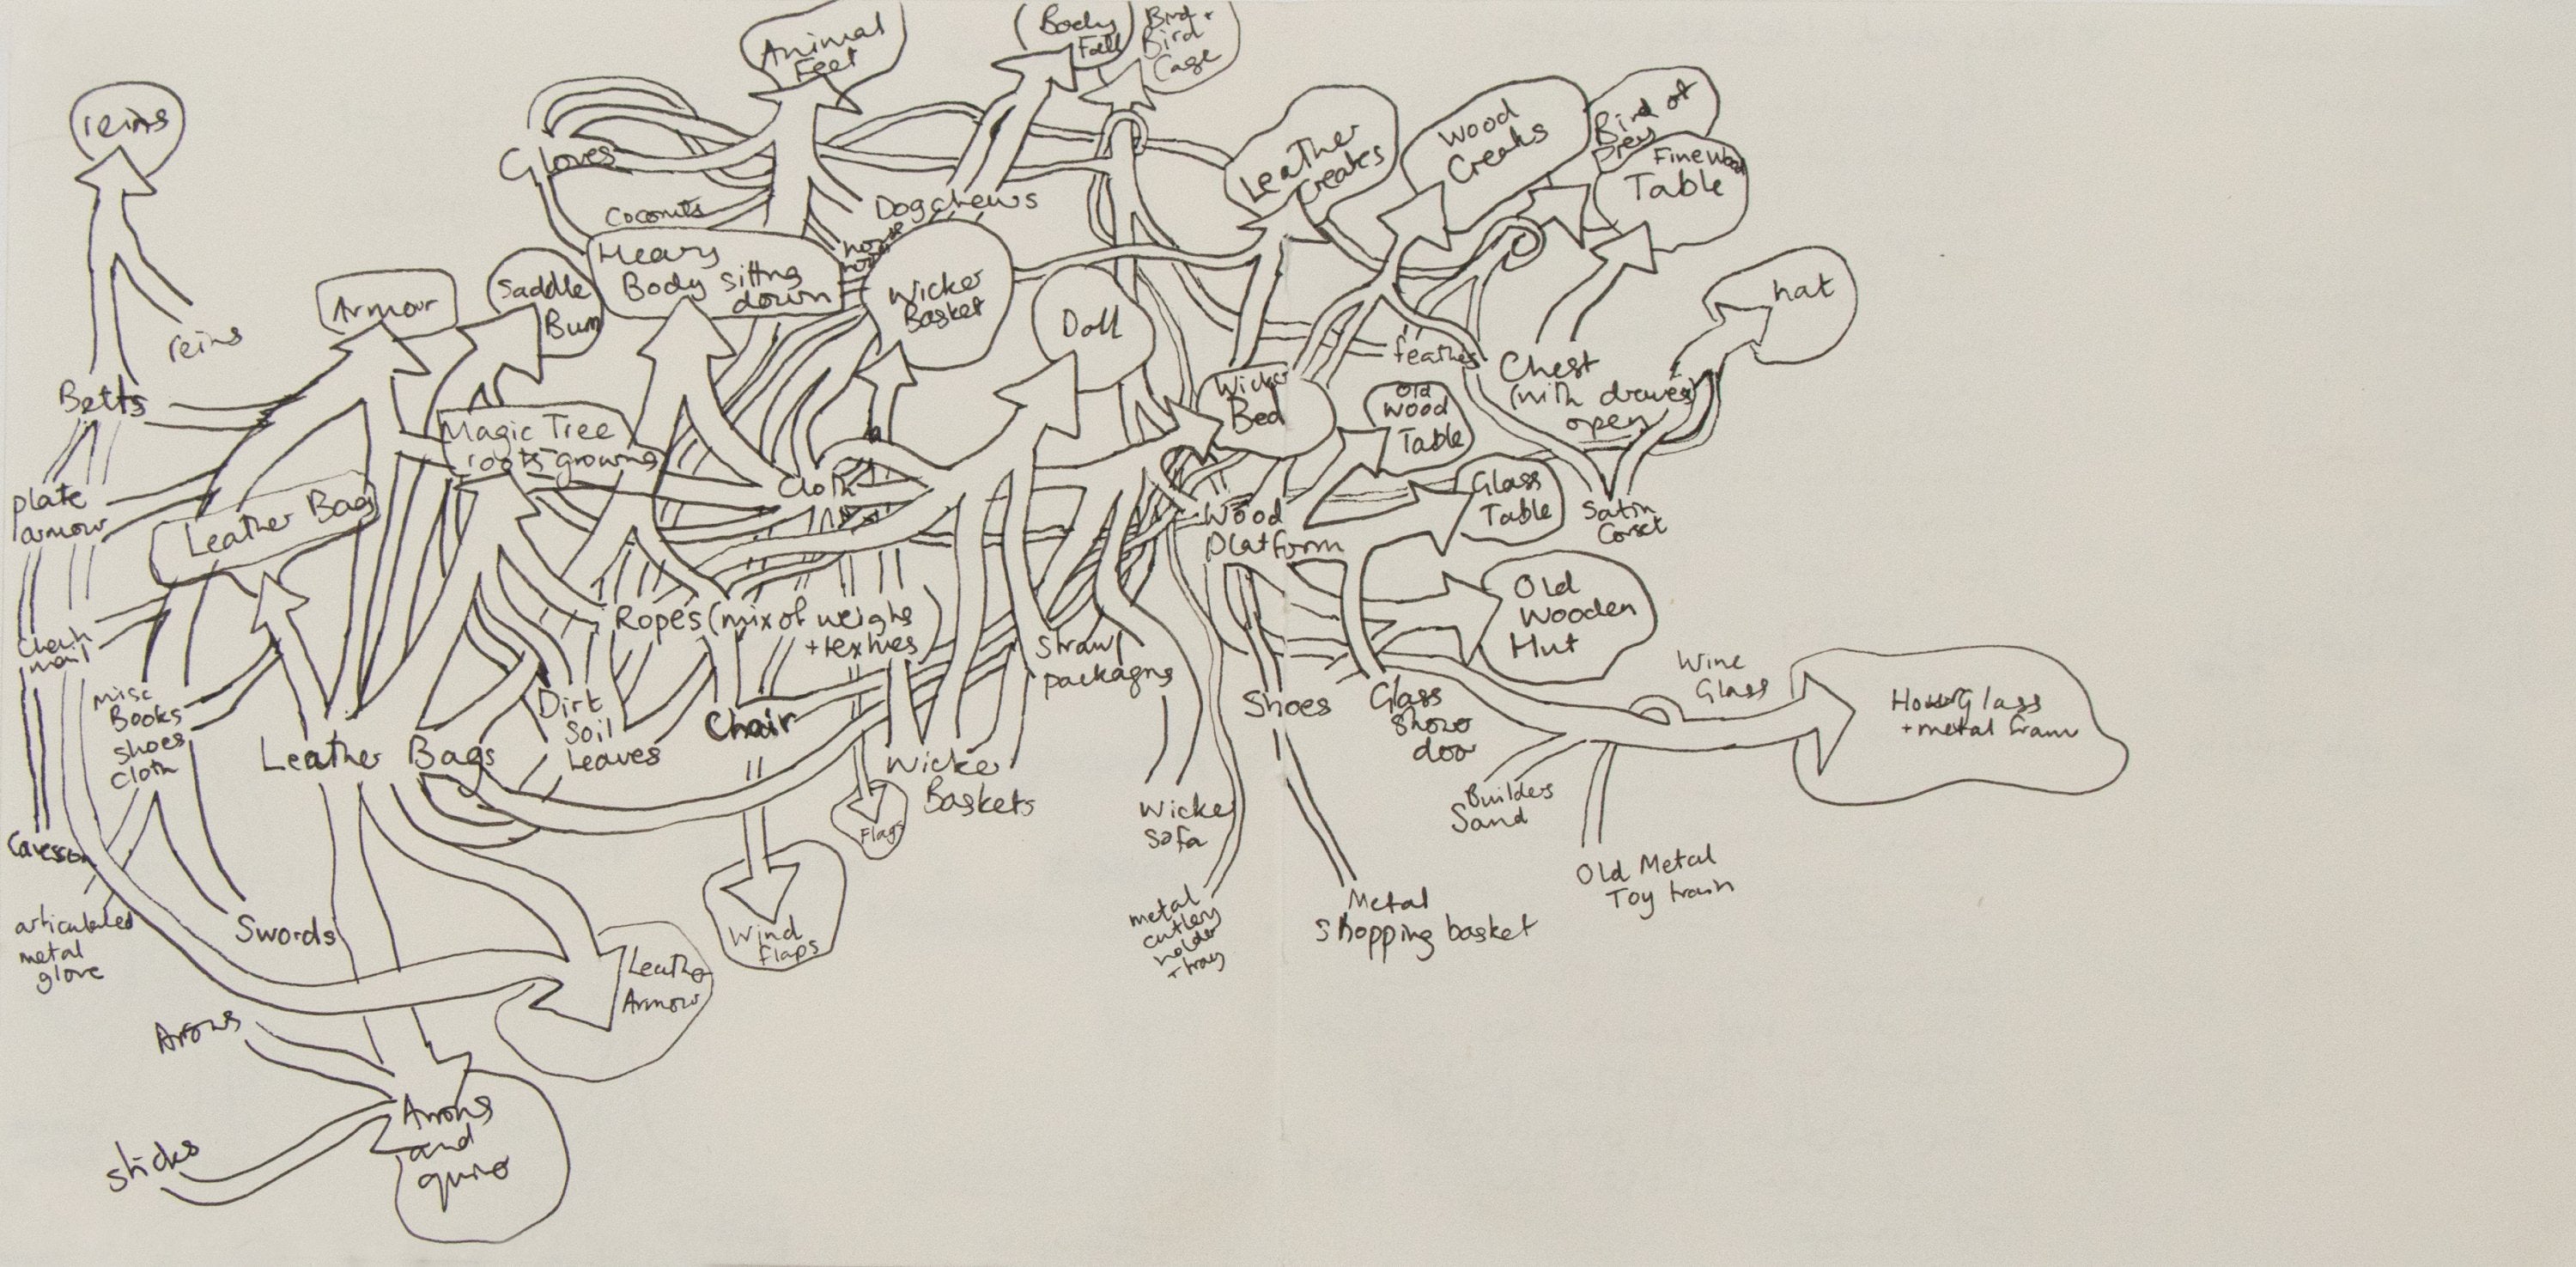 Animal
Feet
Body
Fall
Bird +
Bird
Cage
reins
Gloves
Coconuts
Dogchews
Leather
Creaks
Wood
Creaks
Bird of
Prey
Fine Wood
Table
Armour
Saddle
Bum
Heavy
Body sitting
down
Wicker
Basket
Doll
hat
reins
Belts
Magic Tree
roots growing
feather
Wicker
Bed
Old
Wood
Table
Chest
(with drawer
open)
plate
armour
Leather Bag
Cloth
Wood
Platform
Glass
Table
Satin
Corset
Chain
mail
Ropes (mix of weighs
+ textures)
Straw
packagng
Old
Wooden
Hut
misc
Books
shoes
cloth
Dirt
Soil
Leaves
Chair
Shoes
Glass
Show
door
Wine
Glass
HourGlass
+ metal fram
Leather Bags
Wicker
Baskets
Flags
Wicker
Sofa
Builders
Sand
Cavesson
Old Metal
Toy train
articulated
metal
glove
Swords
Wind
Flaps
metal
cutlery
holder
+ tray
Metal
Shopping basket
Leather
Armour
Arrows
Arrows
and
quiver
sticks